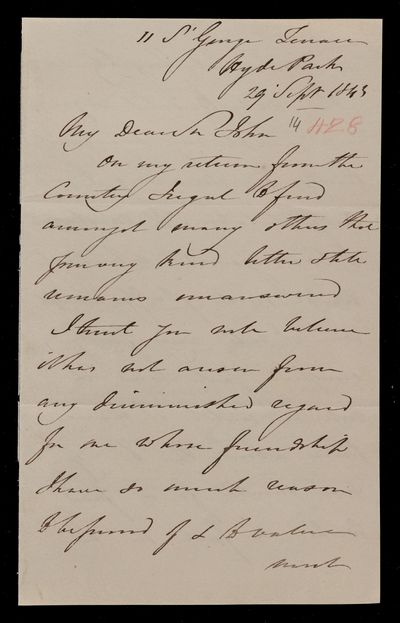 11 St George Terrace
Hyde Park
29 Sept 1843
My Dear Sir John 14 HEB
On my return from the
Country I regret to find
amongst many others that
your very kind letter still
remains unanswered
I trust you will believe
it has not arisen from
any diminished regard
for one whose friendship
I have so much reason
to be proud of & to value
most